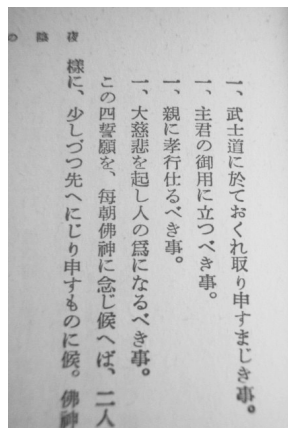 一、武士道に於ておくれ取り申すまじき事。
一、主君の御用に立つべき事。
一、親に孝行仕るべき事。
一、大慈悲を起し人の爲になるべき事。
この四誓願を、毎朝佛神に念じ候へば、二人
樣に、少しづつ先へにじり申すものに候。佛神
夜陰の